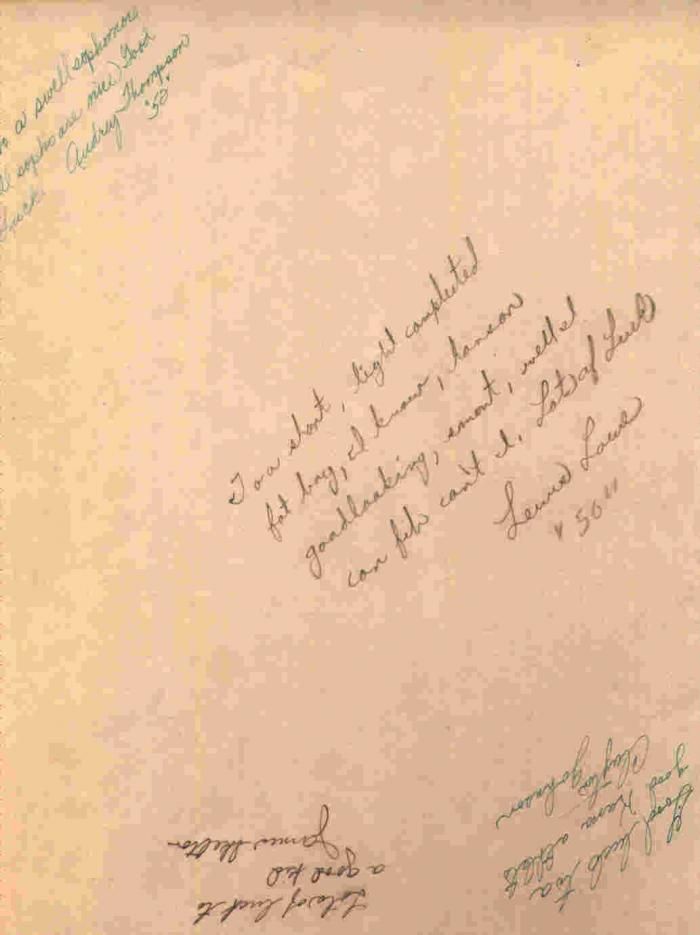 a swell sophomore
sophs are nice Good
Luck. Audrey Thompson
'52'
To a short, light complected
fat boy, I know, hanson
goodlooking, smart, well I
can fib can't I. Lots of Luck
Lewis Lowe
"50"
Good luck to a
good
Clayton Johnson
Lots of luck to
a good kid
James Shelton